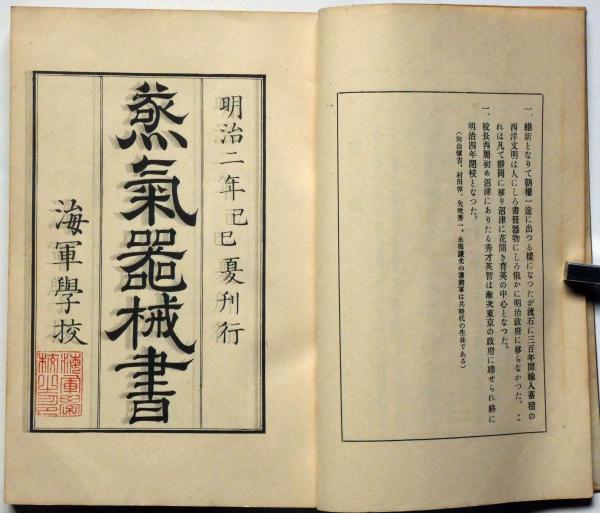 一、維新となりて朝權一途に出つる樣になつたが流石に三百年間輸入蓄積の
西洋文明は人にしろ書冊器物にしろ俄かに明治政府に移らなかつた。こ
れは凡て靜岡に移り沼津に花開き育英の中心となつた。
一、校長西周初め沼津にありたる秀才英智は漸次東京の政府に聘せられ終に
明治四年閉校となつた。
(向山愼吉、村田惇、矢吹秀一、永嶺謙光の諸將軍は其時代の生徒である)
明治二年己巳夏刊行
蒸氣器械書
海軍學校
海軍學
校之印